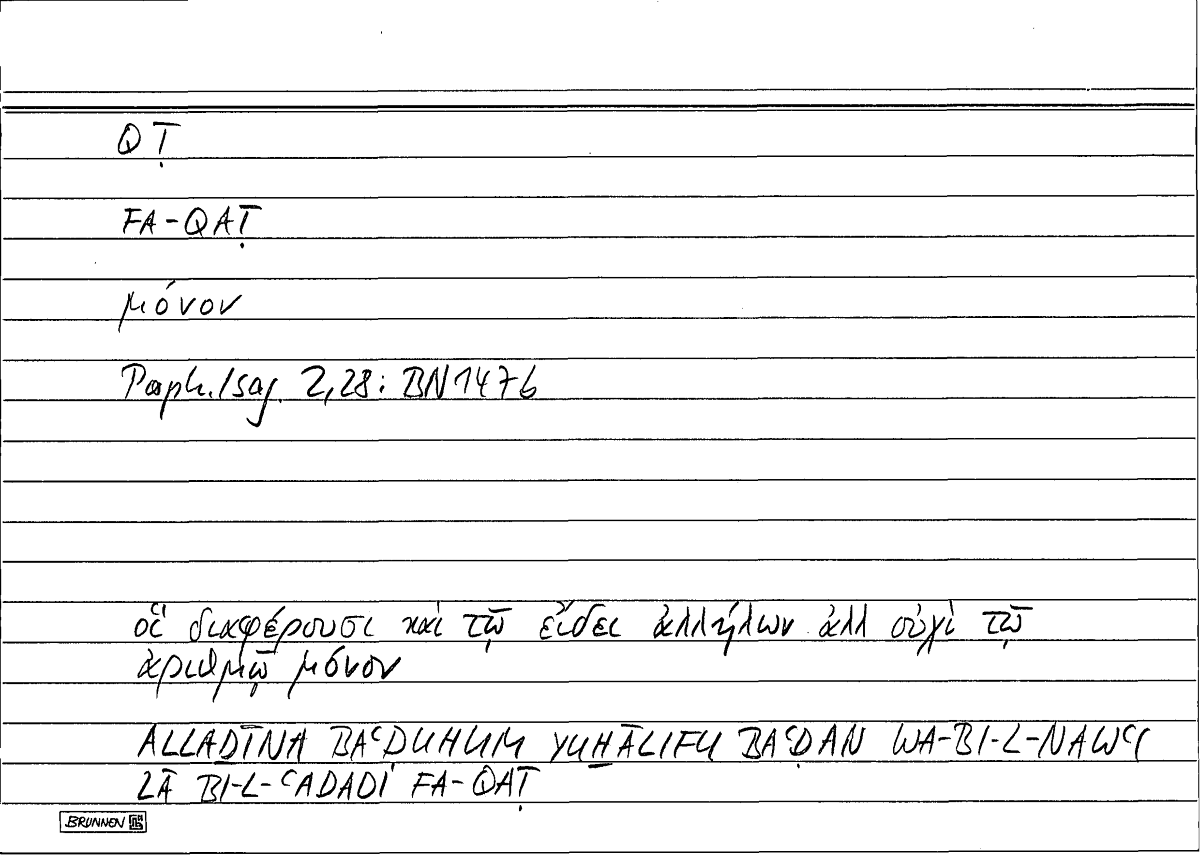 QṬ
FA-QAṬ
μόνον
Porph. Isag. 2,28: BN 147b
οἳ διαφέρουσι καὶ τῷ εἴδει ἀλλήλων ἀλλ οὐχὶ τῷ
ἀριθμῷ μόνον
ALLAḎĪNA BAʿḌUHUM YUḪĀLIFU BAʿḌAN WA-BI-L-NAWʿI
LĀ BI-L-ʿADADI FA-QAṬ
BRUNNEN